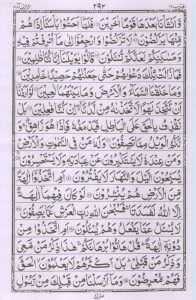 ۲۹۲
وَّاَنْشَاْنَا بَعْدَهَا قَوْمًا اٰخَرِيْنَ فَلَمَّآ اَحَسُّوْا بَاْسَنَآ اِذَا هُمْ
مِّنْهَا يَرْكُضُوْنَ لَا تَرْكُضُوْا وَارْجِعُوْٓا اِلٰى مَآ اُتْرِفْتُمْ فِيْهِ
وَمَسٰكِنِكُمْ لَعَلَّكُمْ تُسْـَٔلُوْنَ قَالُوْا يٰوَيْلَنَآ اِنَّا كُنَّا ظٰلِمِيْنَ
فَمَا زَالَتْ تِّلْكَ دَعْوٰىهُمْ حَتّٰى جَعَلْنٰهُمْ حَصِيْدًا خٰمِدِيْنَ
وَمَا خَلَقْنَا السَّمَآءَ وَالْاَرْضَ وَمَا بَيْنَهُمَا لٰعِبِيْنَ لَوْ اَرَدْنَآ
اَنْ نَّتَّخِذَ لَهْوًا لَّاتَّخَذْنٰهُ مِنْ لَّدُنَّآ اِنْ كُنَّا فٰعِلِيْنَ بَلْ
نَقْذِفُ بِالْحَقِّ عَلَى الْبَاطِلِ فَيَدْمَغُهٗ فَاِذَا هُوَ زَاهِقٌ وَ
لَكُمُ الْوَيْلُ مِمَّا تَصِفُوْنَ وَلَهٗ مَنْ فِى السَّمٰوٰتِ وَالْاَرْضِ
وَمَنْ عِنْدَهٗ لَا يَسْتَكْبِرُوْنَ عَنْ عِبَادَتِهٖ وَلَا يَسْتَحْسِرُوْنَ
يُسَبِّحُوْنَ الَّيْلَ وَالنَّهَارَ لَا يَفْتُرُوْنَ اَمِ اتَّخَذُوْٓا اٰلِهَةً
مِّنَ الْاَرْضِ هُمْ يُنْشِرُوْنَ لَوْ كَانَ فِيْهِمَآ اٰلِهَةٌ
اِلَّا اللّٰهُ لَفَسَدَتَا فَسُبْحٰنَ اللّٰهِ رَبِّ الْعَرْشِ عَمَّا يَصِفُوْنَ
لَا يُسْـَٔلُ عَمَّا يَفْعَلُ وَهُمْ يُسْـَٔلُوْنَ اَمِ اتَّخَذُوْا مِنْ
دُوْنِهٖٓ اٰلِهَةً قُلْ هَاتُوْا بُرْهَانَكُمْ هٰذَا ذِكْرُ مَنْ مَّعِىَ
وَذِكْرُ مَنْ قَبْلِىْ بَلْ اَكْثَرُهُمْ لَا يَعْلَمُوْنَ الْحَقَّ
فَهُمْ مُّعْرِضُوْنَ وَمَآ اَرْسَلْنَا مِنْ قَبْلِكَ مِنْ رَّسُوْلٍ